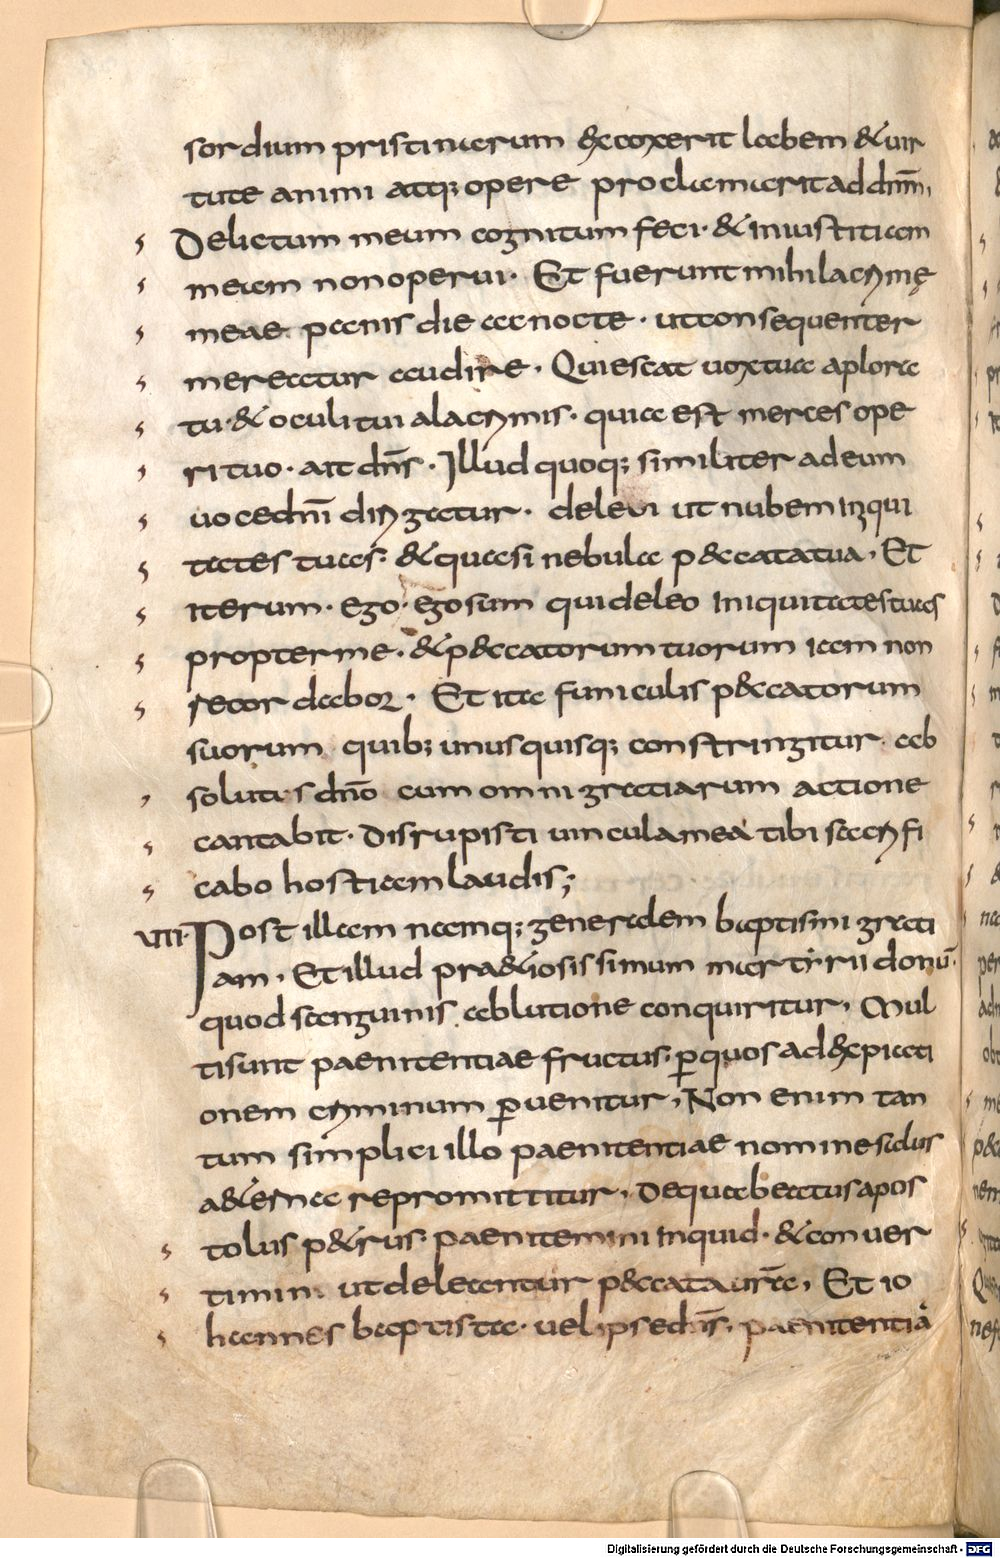 sordium pristinarum excoxerit labem & uir
tute animi atq; opere proclamarit ad dnm̄,
Delictum meum cognitum feci· & iniustitiam
meam non operui· Et fuerunt mihi lacrymę
meae panis die ac nocte· ut consequenter
mereatur audire· Quiescat uox tua a plora
tu· & oculi tui a lacrymis· quia est merces ope
ri tuo· ait dns̄· Illud quoq; similiter ad eum
uoce dnī dirigatur· delevi ut nubem iniqui
tates tuas· & quasi nebula peccata tua, Et
iterum· ego· ego sum qui deleo iniquitates tuas
propter me· & peccatorum tuorum iam non
recordabor· Et ita funiculis peccatorum
suorum quib; unusquisq; constringitur ab
solutis dnō cum omni gratiarum actione
cantabit· Disrupisti uincula mea tibi sacrifi
cabo hostiam laudis;
VIII· Post illam namq; generalem baptismi grati
am, Et illud pra&iosissimum martyrii donū·
quod sanguinis ablutione conquiritur, Mul
ti sunt paenitentiae fructus· ꝑ quos ad expiati
onem criminum ꝑuenitur, Non enim tan
tum simplici illo paenitentiae nomine salus
a&erna repromittitur, De qua beatus apos
tolus p&rus· paenitemini inquid· & conuer
timini ut deleantur peccata ur̄a, Et io
hannes baptista· uel ipse dns̄, paenitentiā
Digitalisierung gefördert durch die Deutsche Forschungsgemeinschaft - DFG